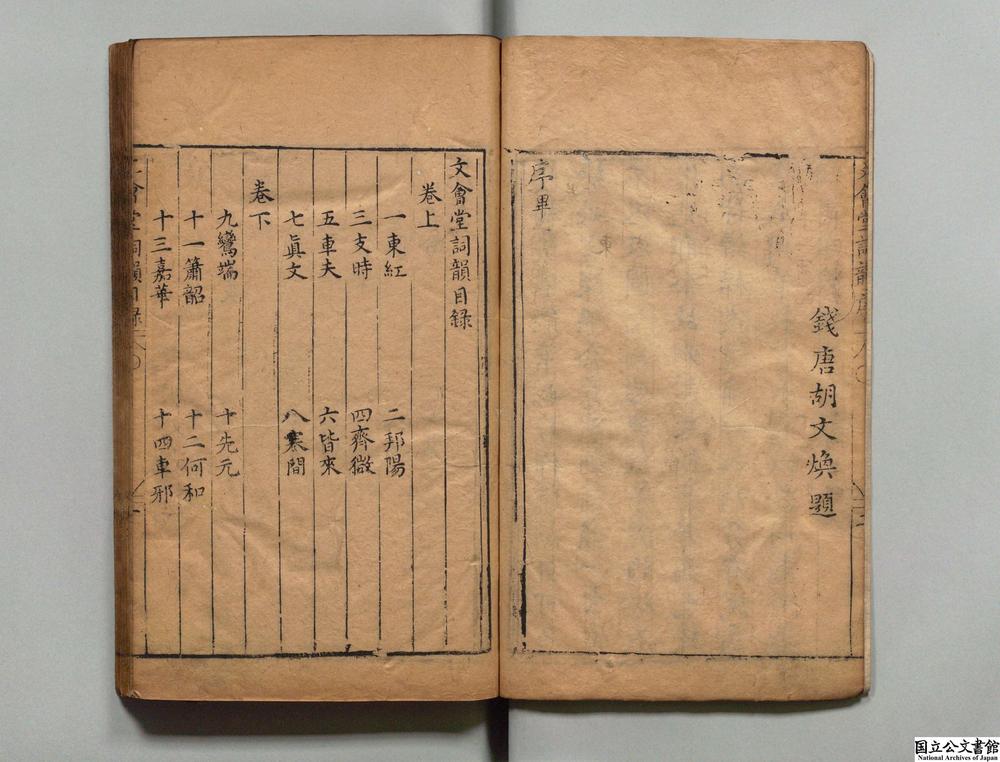 錢唐胡文煥題
序畢
文會堂詞韻目録
卷上
一東紅 二邦陽
三支時 四齊微
五車夫 六皆來
七眞文 八寒間
卷下
九鸞端 十先元
十一簫韶 十二何和
十三嘉華 十四車邪
文會堂詞韻目録
国立公文書館
National Archives of Japan